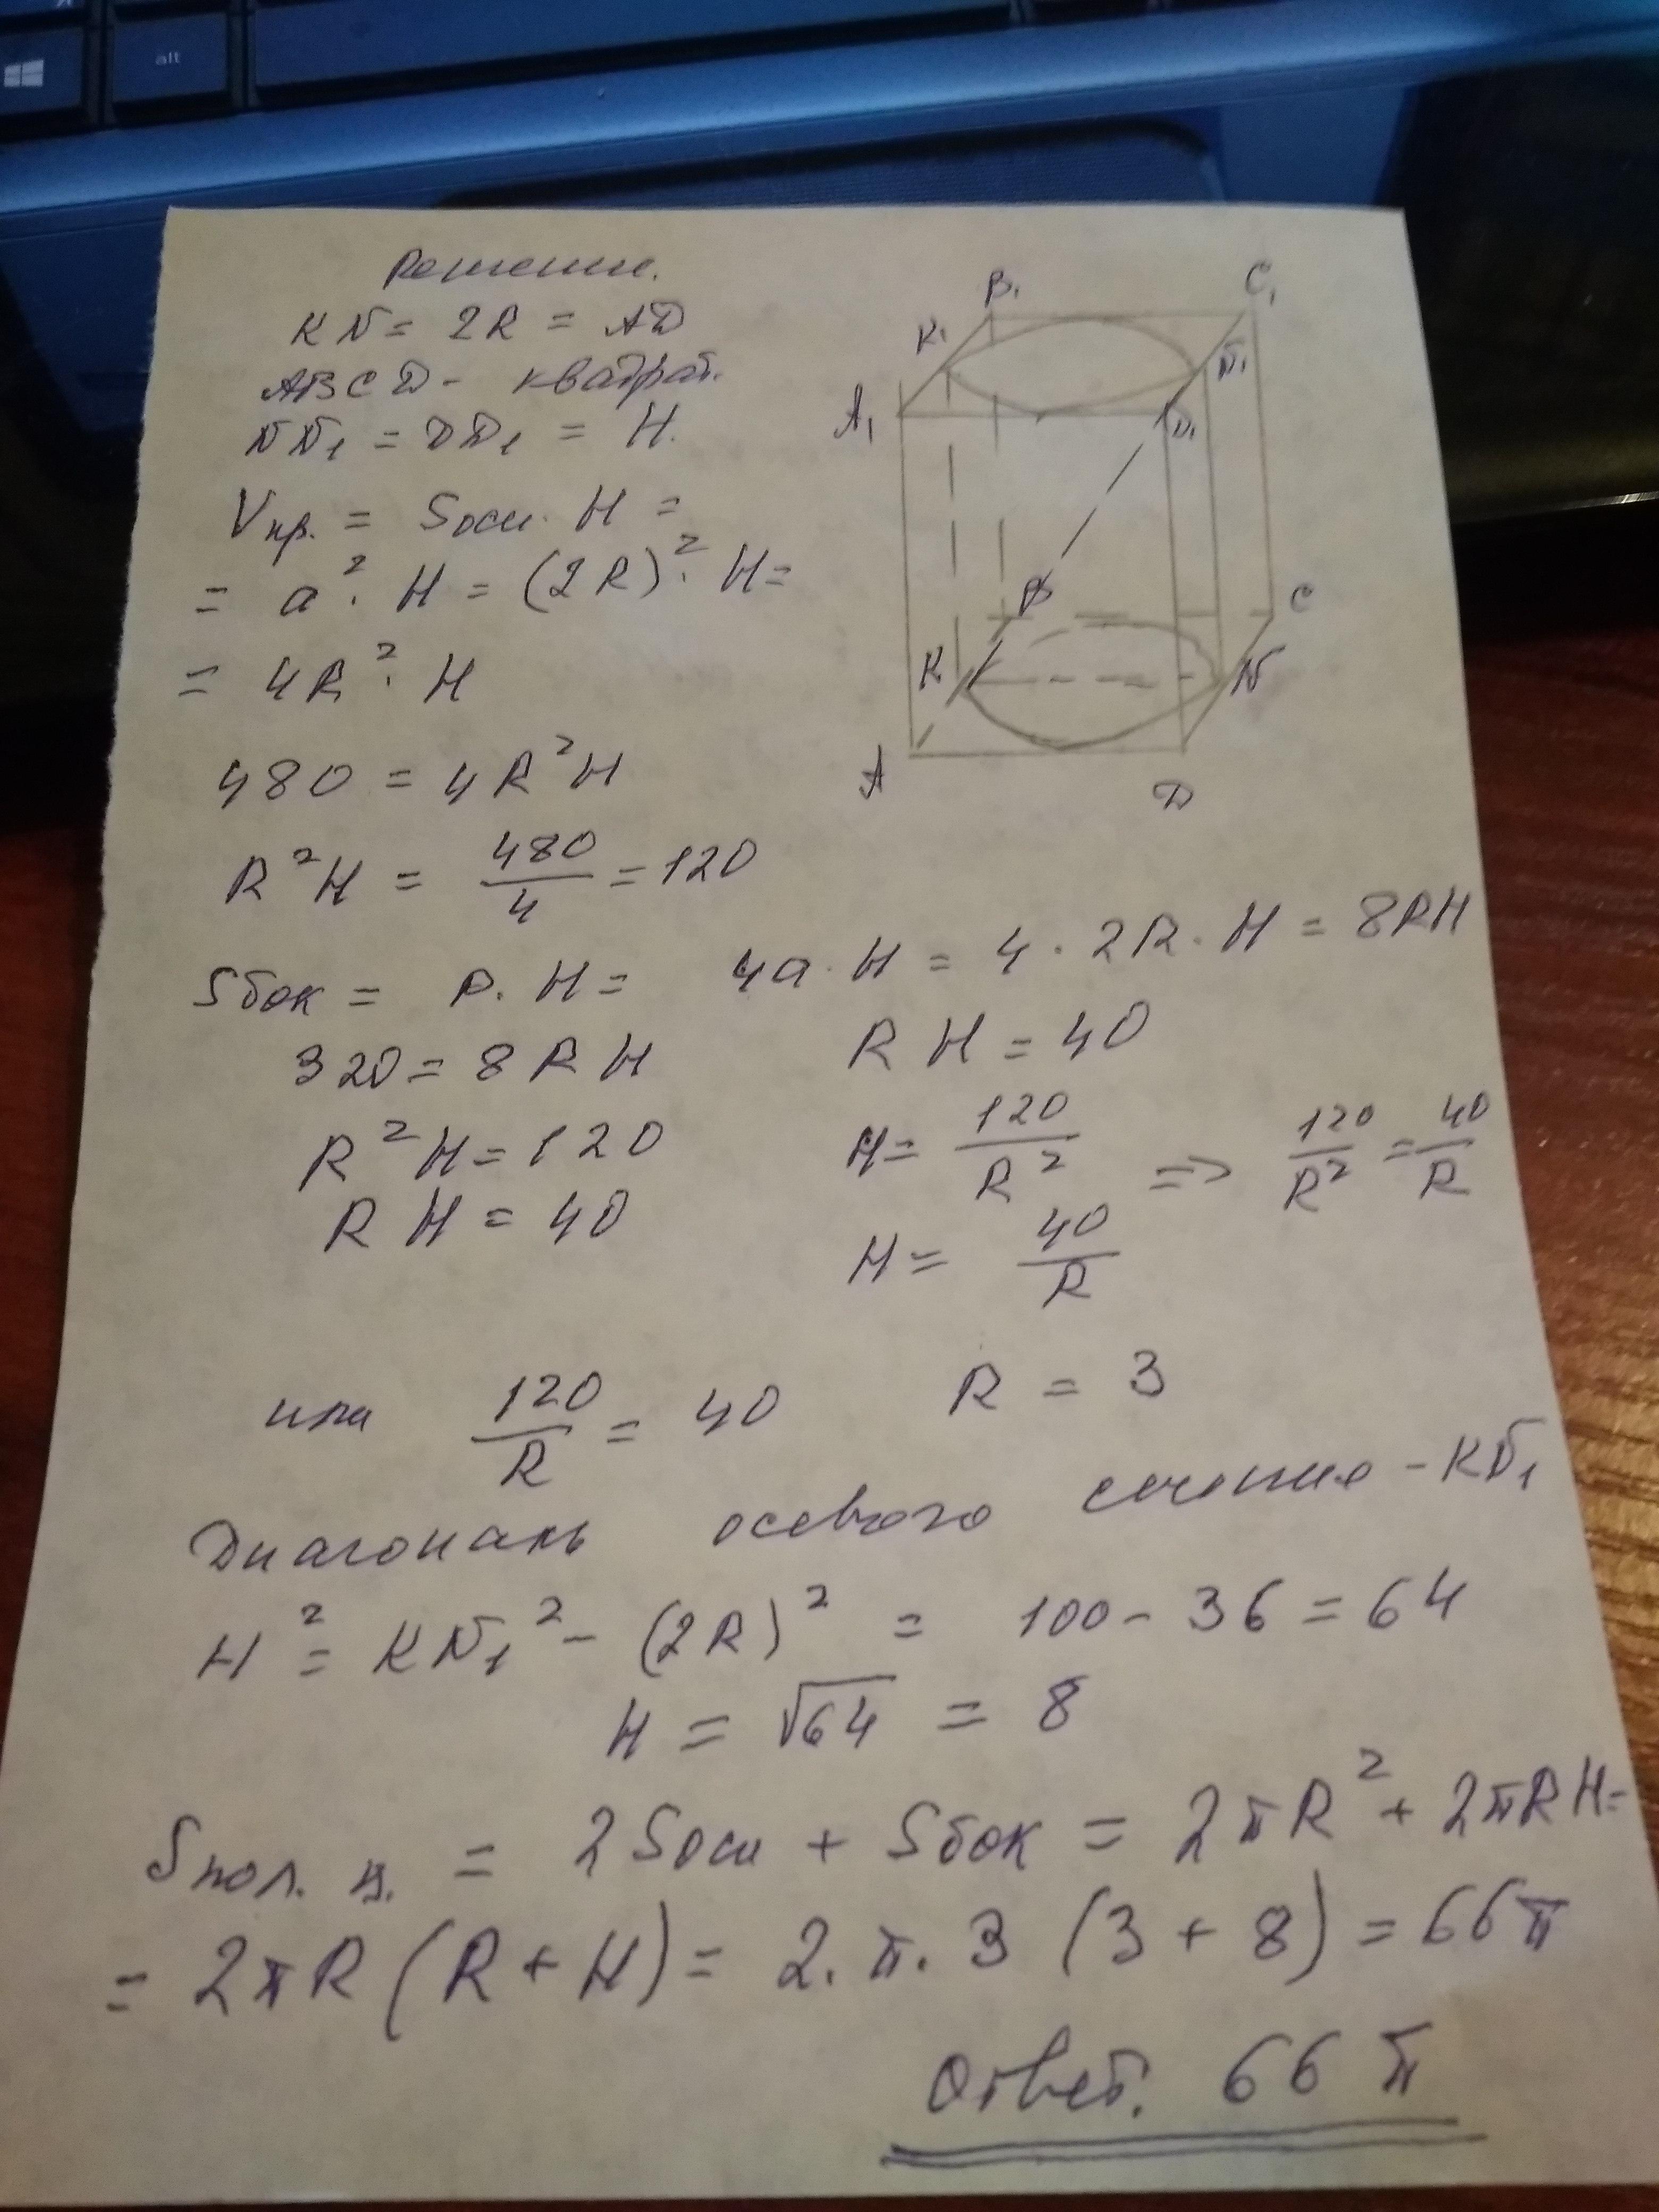 alt
Решение.
KN = 2R = AD
ABCD - квадрат.
NN₁ = DD₁ = H.
Vпр. = Sосн · H =
= a² · H = (2R)² · H =
= 4R² · H
480 = 4R²H
R²H = 480/4 = 120
Sбок = P · H = 4a · H = 4 · 2R · H = 8RH
320 = 8RH RH = 40
R²H = 120 H = 120/R² => 120/R² = 40/R
RH = 40 H = 40/R
или 120/R = 40 R = 3
Диагональ осевого сечения - KN₁
H² = KN₁² - (2R)² = 100 - 36 = 64
H = √64 = 8
Sпол. ц. = 2Sосн + Sбок = 2πR² + 2πRH =
= 2πR (R + H) = 2 · π · 3 (3 + 8) = 66π
Ответ. 66π
B₁
C₁
K₁
N₁
A₁
D₁
B
C
K
N
A
D